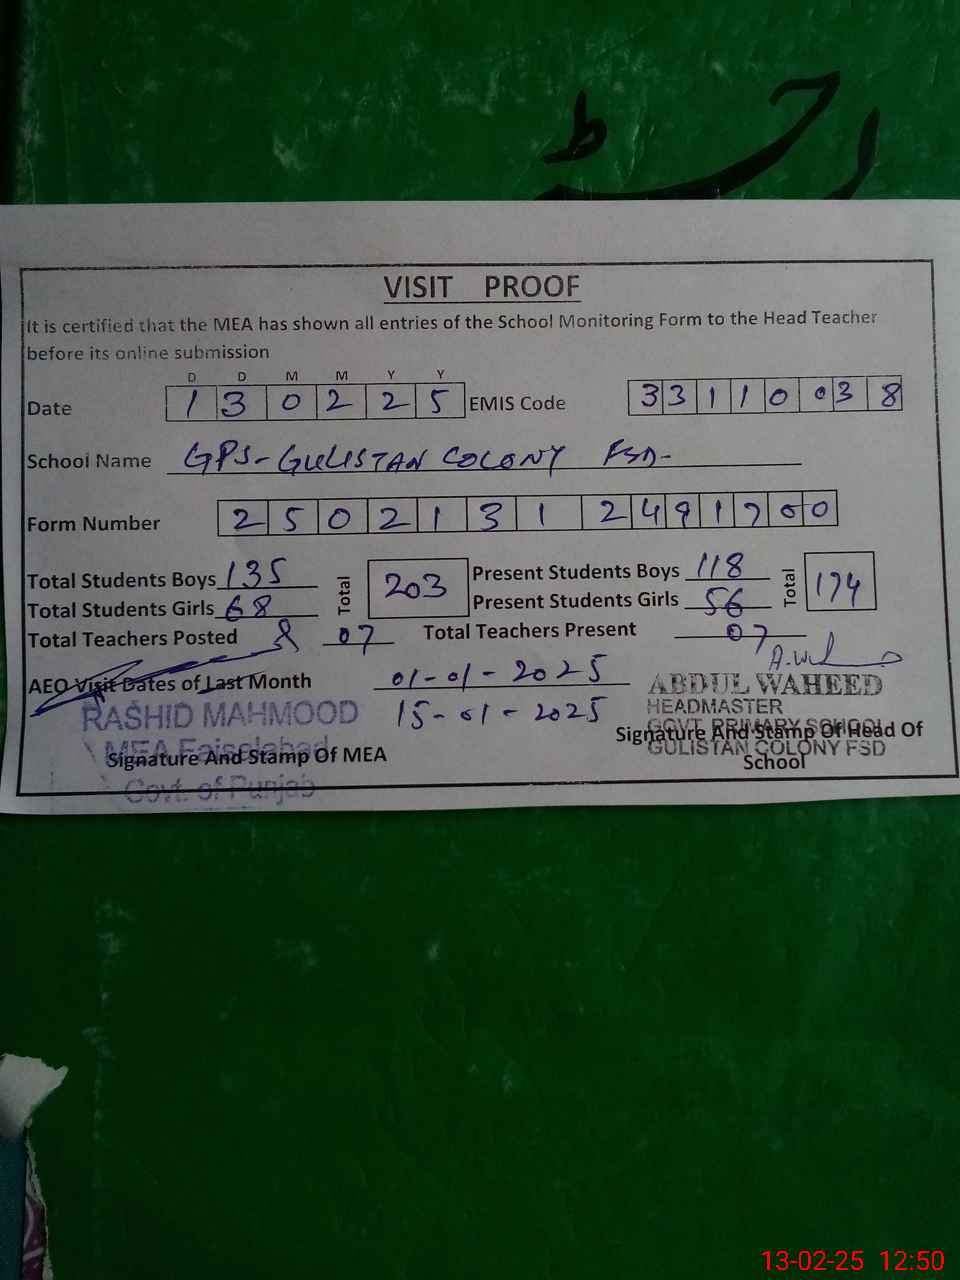 احـٹـ
VISIT PROOF
It is certified that the MEA has shown all entries of the School Monitoring Form to the Head Teacher
before its online submission
D D M M Y Y
Date 1 3 0 2 2 5 EMIS Code 3 3 1 1 0 0 3 8
School Name GPS- GULISTAN COLONY FSD-
Form Number 2 5 0 2 1 3 1 2 4 9 1 7 0 0
Total Students Boys 135 Total 203 Present Students Boys 118 Total 174
Total Students Girls 68 Present Students Girls 56
Total Teachers Posted 07 Total Teachers Present 07
A.W
AEO Visit Dates of Last Month 01-01-2025
15-01-2025
RASHID MAHMOOD
MEA Faisalabad
Govt. of Punjab
Signature And Stamp Of MEA
ABDUL WAHEED
HEADMASTER
GOVT. PRIMARY SCHOOL
GULISTAN COLONY FSD
Signature And Stamp Of Head Of
School
13-02-25 12:50